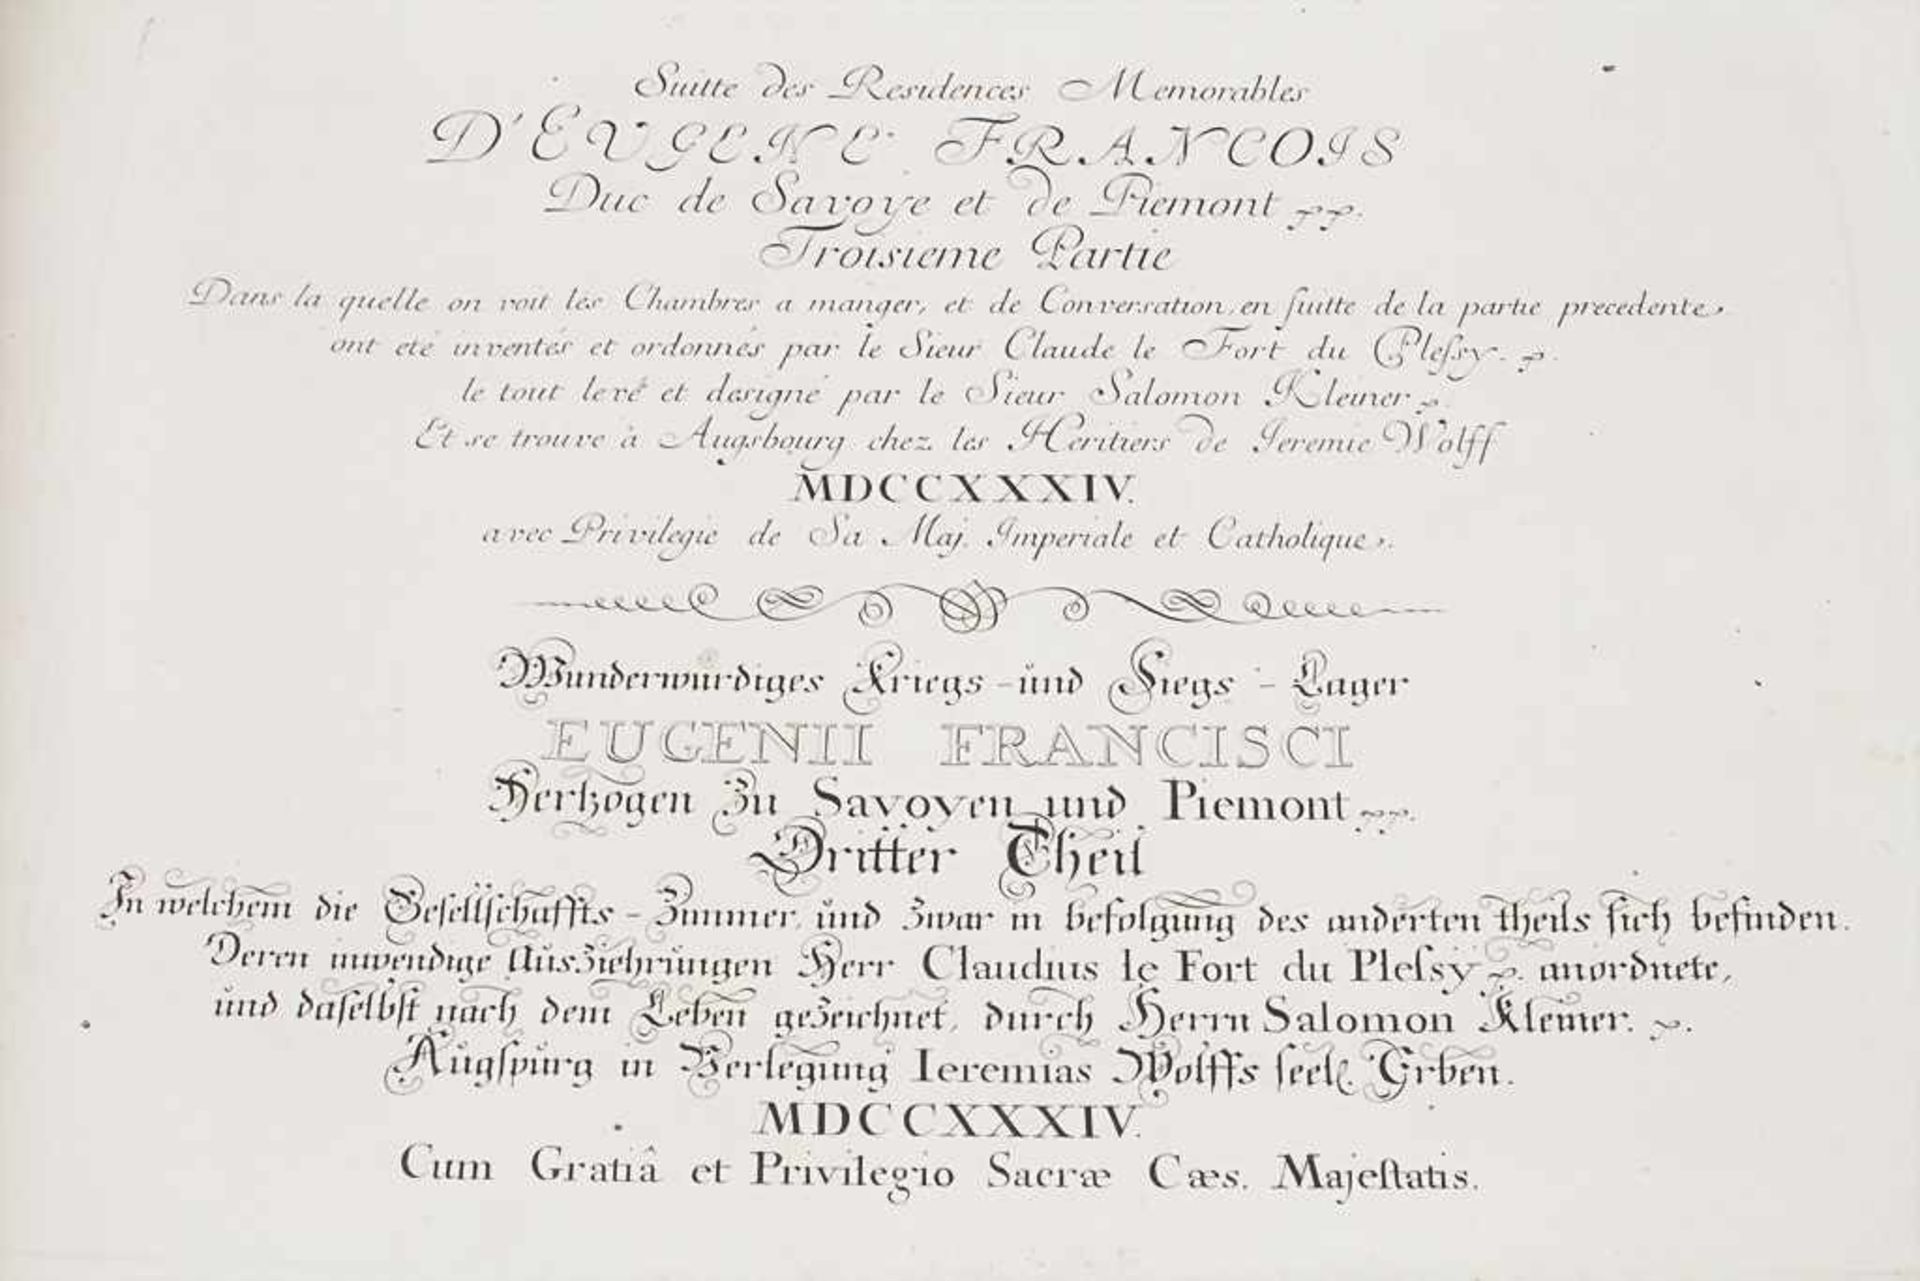 Suitte des Residences Memorables
D'EUGENE FRANCOIS
Duc de Savoye et de Piemont
Troisieme Partie
Dans la quelle on voit les Chambres a manger, et de Conversation, en ſuitte de la partie precedente,
ont eté inventés et ordonnés par le Sieur Claude le Fort du Pleſsy.
le tout levé et designé par le Sieur Salomon Kleiner
Et se trouve à Augsbourg chez les Heritiers de Ieremie Wolff
MDCCXXXIV.
avec Privilegie de Sa Maj. Imperiale et Catholique.
Wunderwürdiges Kriegs-und Siegs-Lager
EUGENII FRANCISCI
Hertzogen Zu Savoyen und Piemont
Dritter Theil
In welchem die Geſellſchaffts-Zimmer, und zwar in befolgung des anderten theils ſich befinden.
Deren inwendige Ausziehrungen Herr Claudius le Fort du Pleſsy anordnete,
und daſelbſt nach dem Leben gezeichnet, durch Herrn Salomon Kleiner.
Augſpurg in Verlegung Ieremias Wolffs ſeel. Erben.
MDCCXXXIV.
Cum Gratiâ et Privilegio Sacræ Cæs. Majeſtatis.